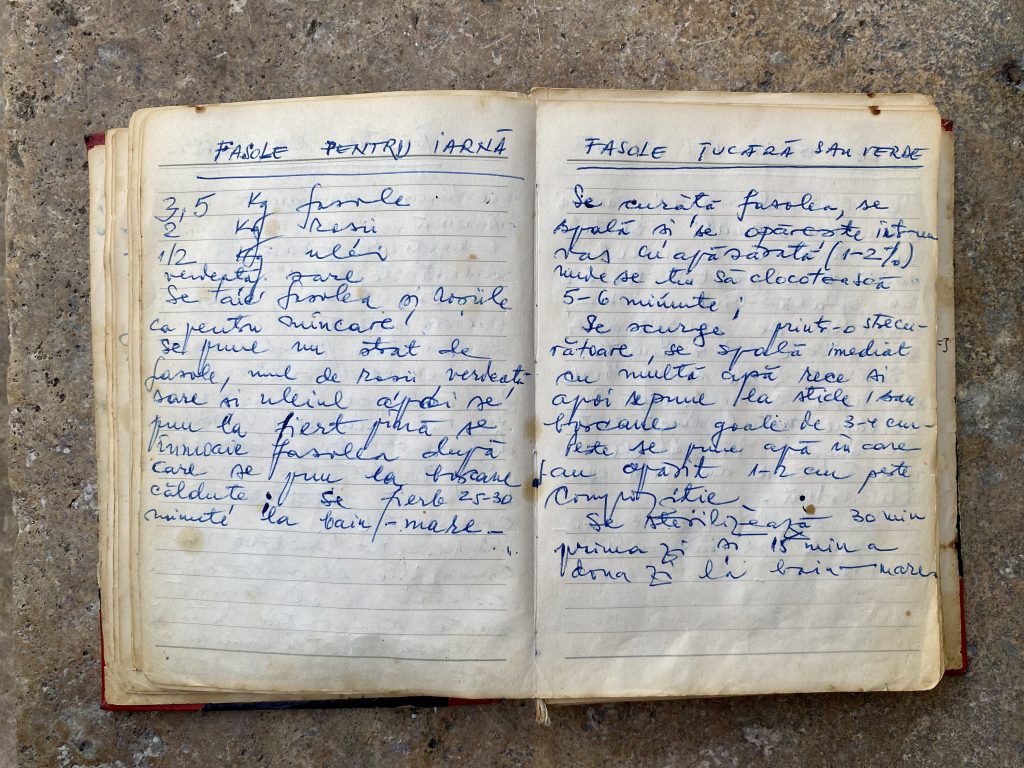 FASOLE PENTRU IARNĂ
3,5 Kg fasole
2 Kg rosii
1/2 Kg uléi
verdeată sare
Se taie fasolea și roșiile
ca pentru mîncare
Se pune un strat de
fasole, unul de rosii, verdeată
sare si uleiul apoi se
pun la fiert pină se
înmoaie fasolea după
care se pun la bocane
căldute. Se fierb 25-30
minute la bain-mare
FASOLE ȚUCĂRĂ SAU VERDE
Se curătă fasolea, se
spală si se opăreste într-un
vas cu apă sărată (1-2%)
unde se tin să clocotească
5-6 minute;
Se scurge printr-o strecu-
rătoare, se spală imediat
cu multă apă rece si
apoi se pune la sticle sau
bocane goale de 3-4 cm
Peste se pune apă în care
au opărit 1-2 cm peste
Compozitie
Se sterilizează 30 min
prima zi si 15 min a
doua zi la bain-mare